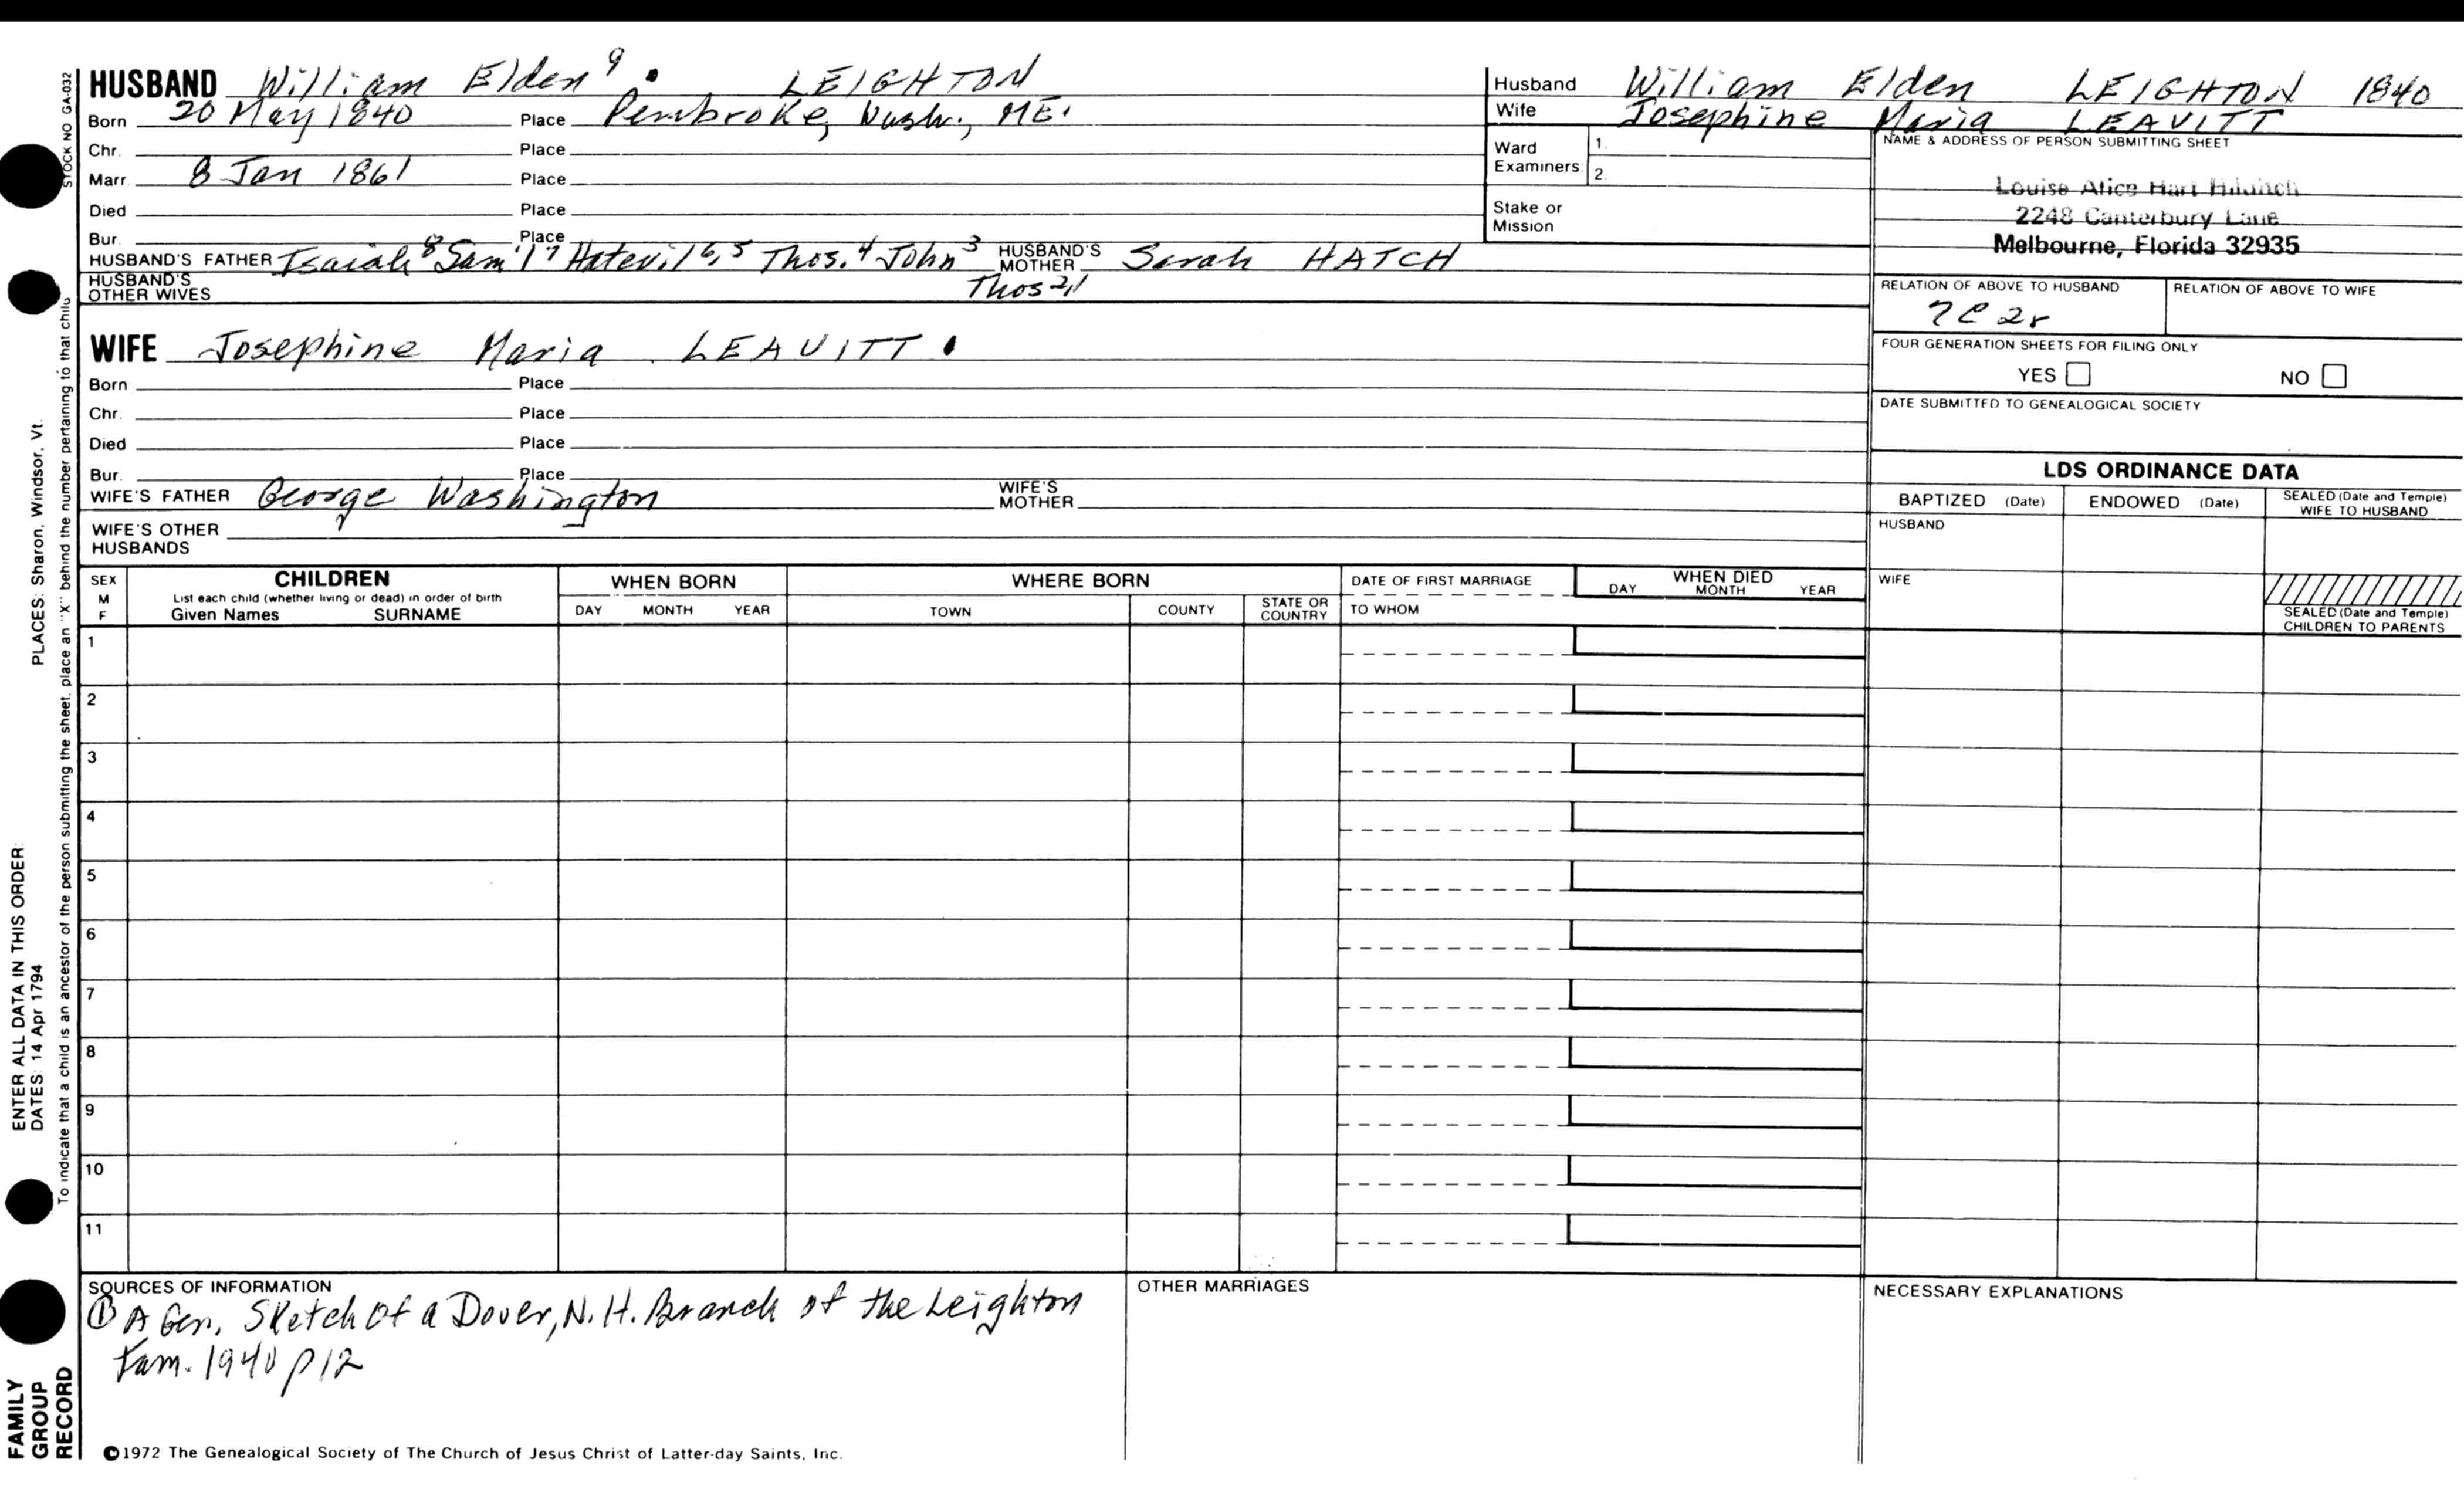 HUSBAND William Elden 9 . LEIGHTON
Born 20 May 1840 Place Pembroke, Wash., ME.
Chr. Place
Marr. 8 Jan 1861 Place
Died Place
Bur. Place
HUSBAND'S FATHER Isaiah 8 Sam'l 7 Hatevil 6,5 Thos. 4 John 3 HUSBAND'S MOTHER Sarah HATCH
HUSBAND'S OTHER WIVES Thos 2,1
WIFE Josephine Maria LEAVITT .
Born Place
Chr. Place
Died Place
Bur. Place
WIFE'S FATHER George Washington WIFE'S MOTHER
WIFE'S OTHER HUSBANDS
Husband William Elden LEIGHTON 1840
Wife Josephine Maria LEAVITT
Ward Examiners: 1. 2.
Stake or Mission
NAME & ADDRESS OF PERSON SUBMITTING SHEET
Louise Alice Hart
2248 Canterbury Lane
Melbourne, Florida 32935
RELATION OF ABOVE TO HUSBAND RELATION OF ABOVE TO WIFE
7C 2r
FOUR GENERATION SHEETS FOR FILING ONLY
YES NO
DATE SUBMITTED TO GENEALOGICAL SOCIETY
LDS ORDINANCE DATA
BAPTIZED (Date) ENDOWED (Date) SEALED (Date and Temple) WIFE TO HUSBAND
HUSBAND
WIFE
SEALED (Date and Temple) CHILDREN TO PARENTS
SEX M F
CHILDREN
List each child (whether living or dead) in order of birth
Given Names SURNAME
WHEN BORN
DAY MONTH YEAR
WHERE BORN
TOWN COUNTY STATE OR COUNTRY
DATE OF FIRST MARRIAGE
TO WHOM
WHEN DIED
DAY MONTH YEAR
1
2
3
4
5
6
7
8
9
10
11
SOURCES OF INFORMATION
① A Gen. Sketch of a Dover, N.H. Branch of the Leighton
Fam. 1940 p12
OTHER MARRIAGES
NECESSARY EXPLANATIONS
©1972 The Genealogical Society of The Church of Jesus Christ of Latter-day Saints, Inc.
STOCK NO GA-032
To indicate that a child is an ancestor of the person submitting the sheet, place an "X" behind the number pertaining to that child
PLACES: Sharon, Windsor, Vt.
ENTER ALL DATA IN THIS ORDER:
DATES: 14 Apr 1794
FAMILY
GROUP
RECORD